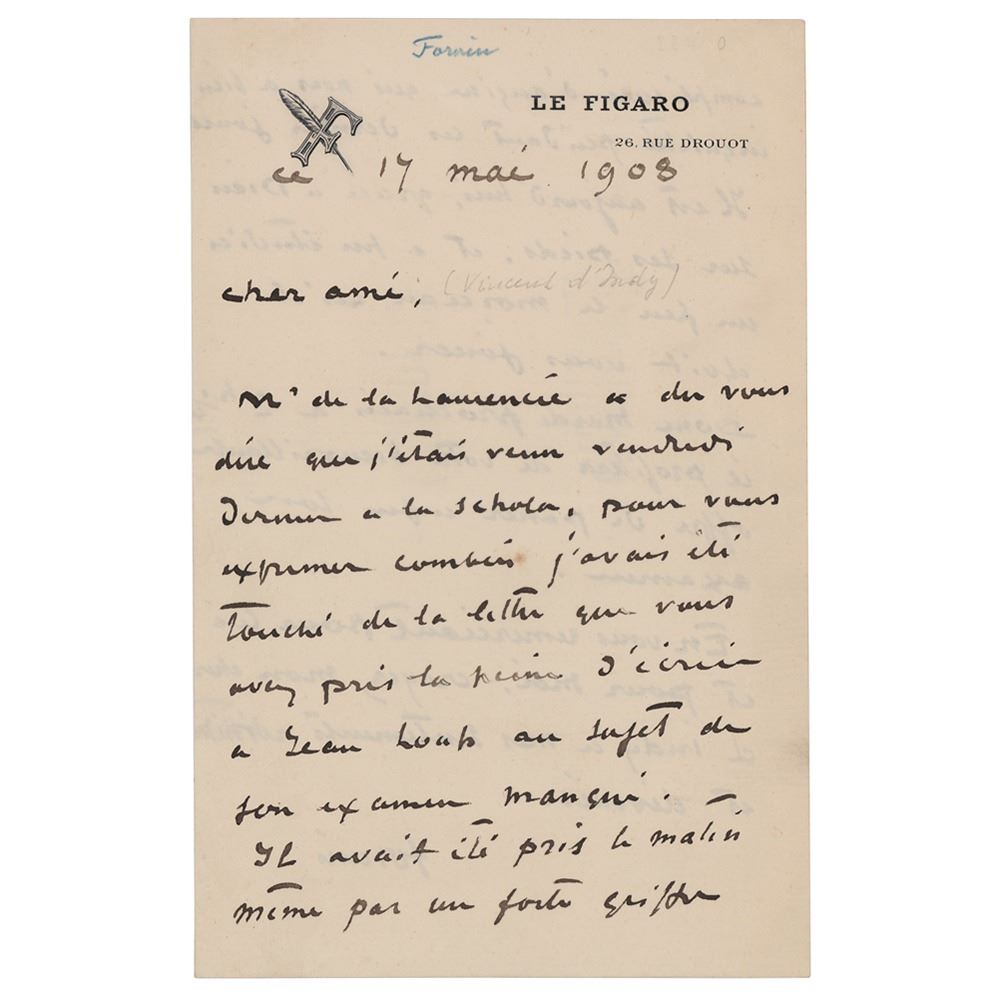 Forain
LE FIGARO
26, RUE DROUOT
ce 17 mai 1908
cher ami, (Vincent d'Indy)
Mr de la Laurencie a du vous
dire que j'étais venu vendredi
dernier a la schola, pour vous
exprimer combien j'avais été
touché de la lettre que vous
avez pris la peine d'écrire
a Jean Loup au sujet de
son examen manqué.
Il avait été pris le matin
même par un forte grippe